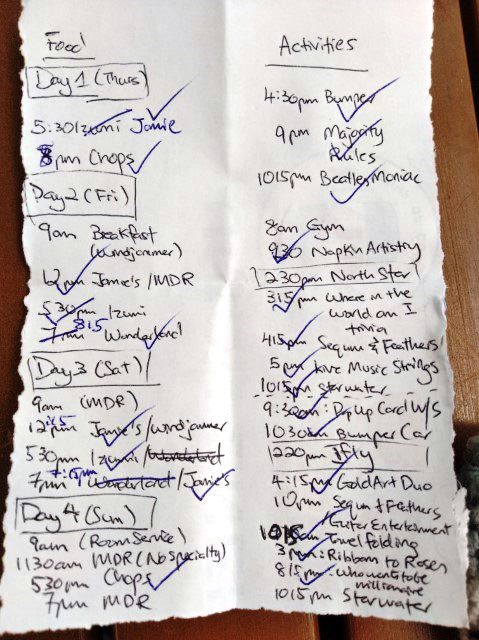 Food
Day 1 (Thurs)
5:30 Izumi Jamie
8pm Chops
Day 2 (Fri)
9am Breakfast
(Windjammer)
12pm Jamie's/MDR
530pm Izumi
7pm 815 Wonderland
Day 3 (Sat)
9am (MDR)
12pm Jamie's/Windjammer
530pm Izumi/Wonderland
7pm 7:15pm Wonderland/Jamie's
Day 4 (Sun)
9am (Room Service)
1130am MDR (No specialty)
530pm Chops
7pm MDR
Activities
4:30pm Bumper
9pm Majority
Rules
1015pm Beatles Maniac
8am Gym
930 Napkin Artistry
230pm North Star
315pm Where in the
world am I
trivia
415pm Sequin & Feathers
5pm Live Music Strings
1015pm Starwater
9:30am: Pop Up Card W/S
1030am Bumper Car
220pm Ifly
4:15pm Gold Art Duo
10pm Sequin & Feathers
Guitar Entertainment
1015am Towel folding
3pm: Ribbon to Roses
815pm - who wants to be
millionaire
1015pm Starwater